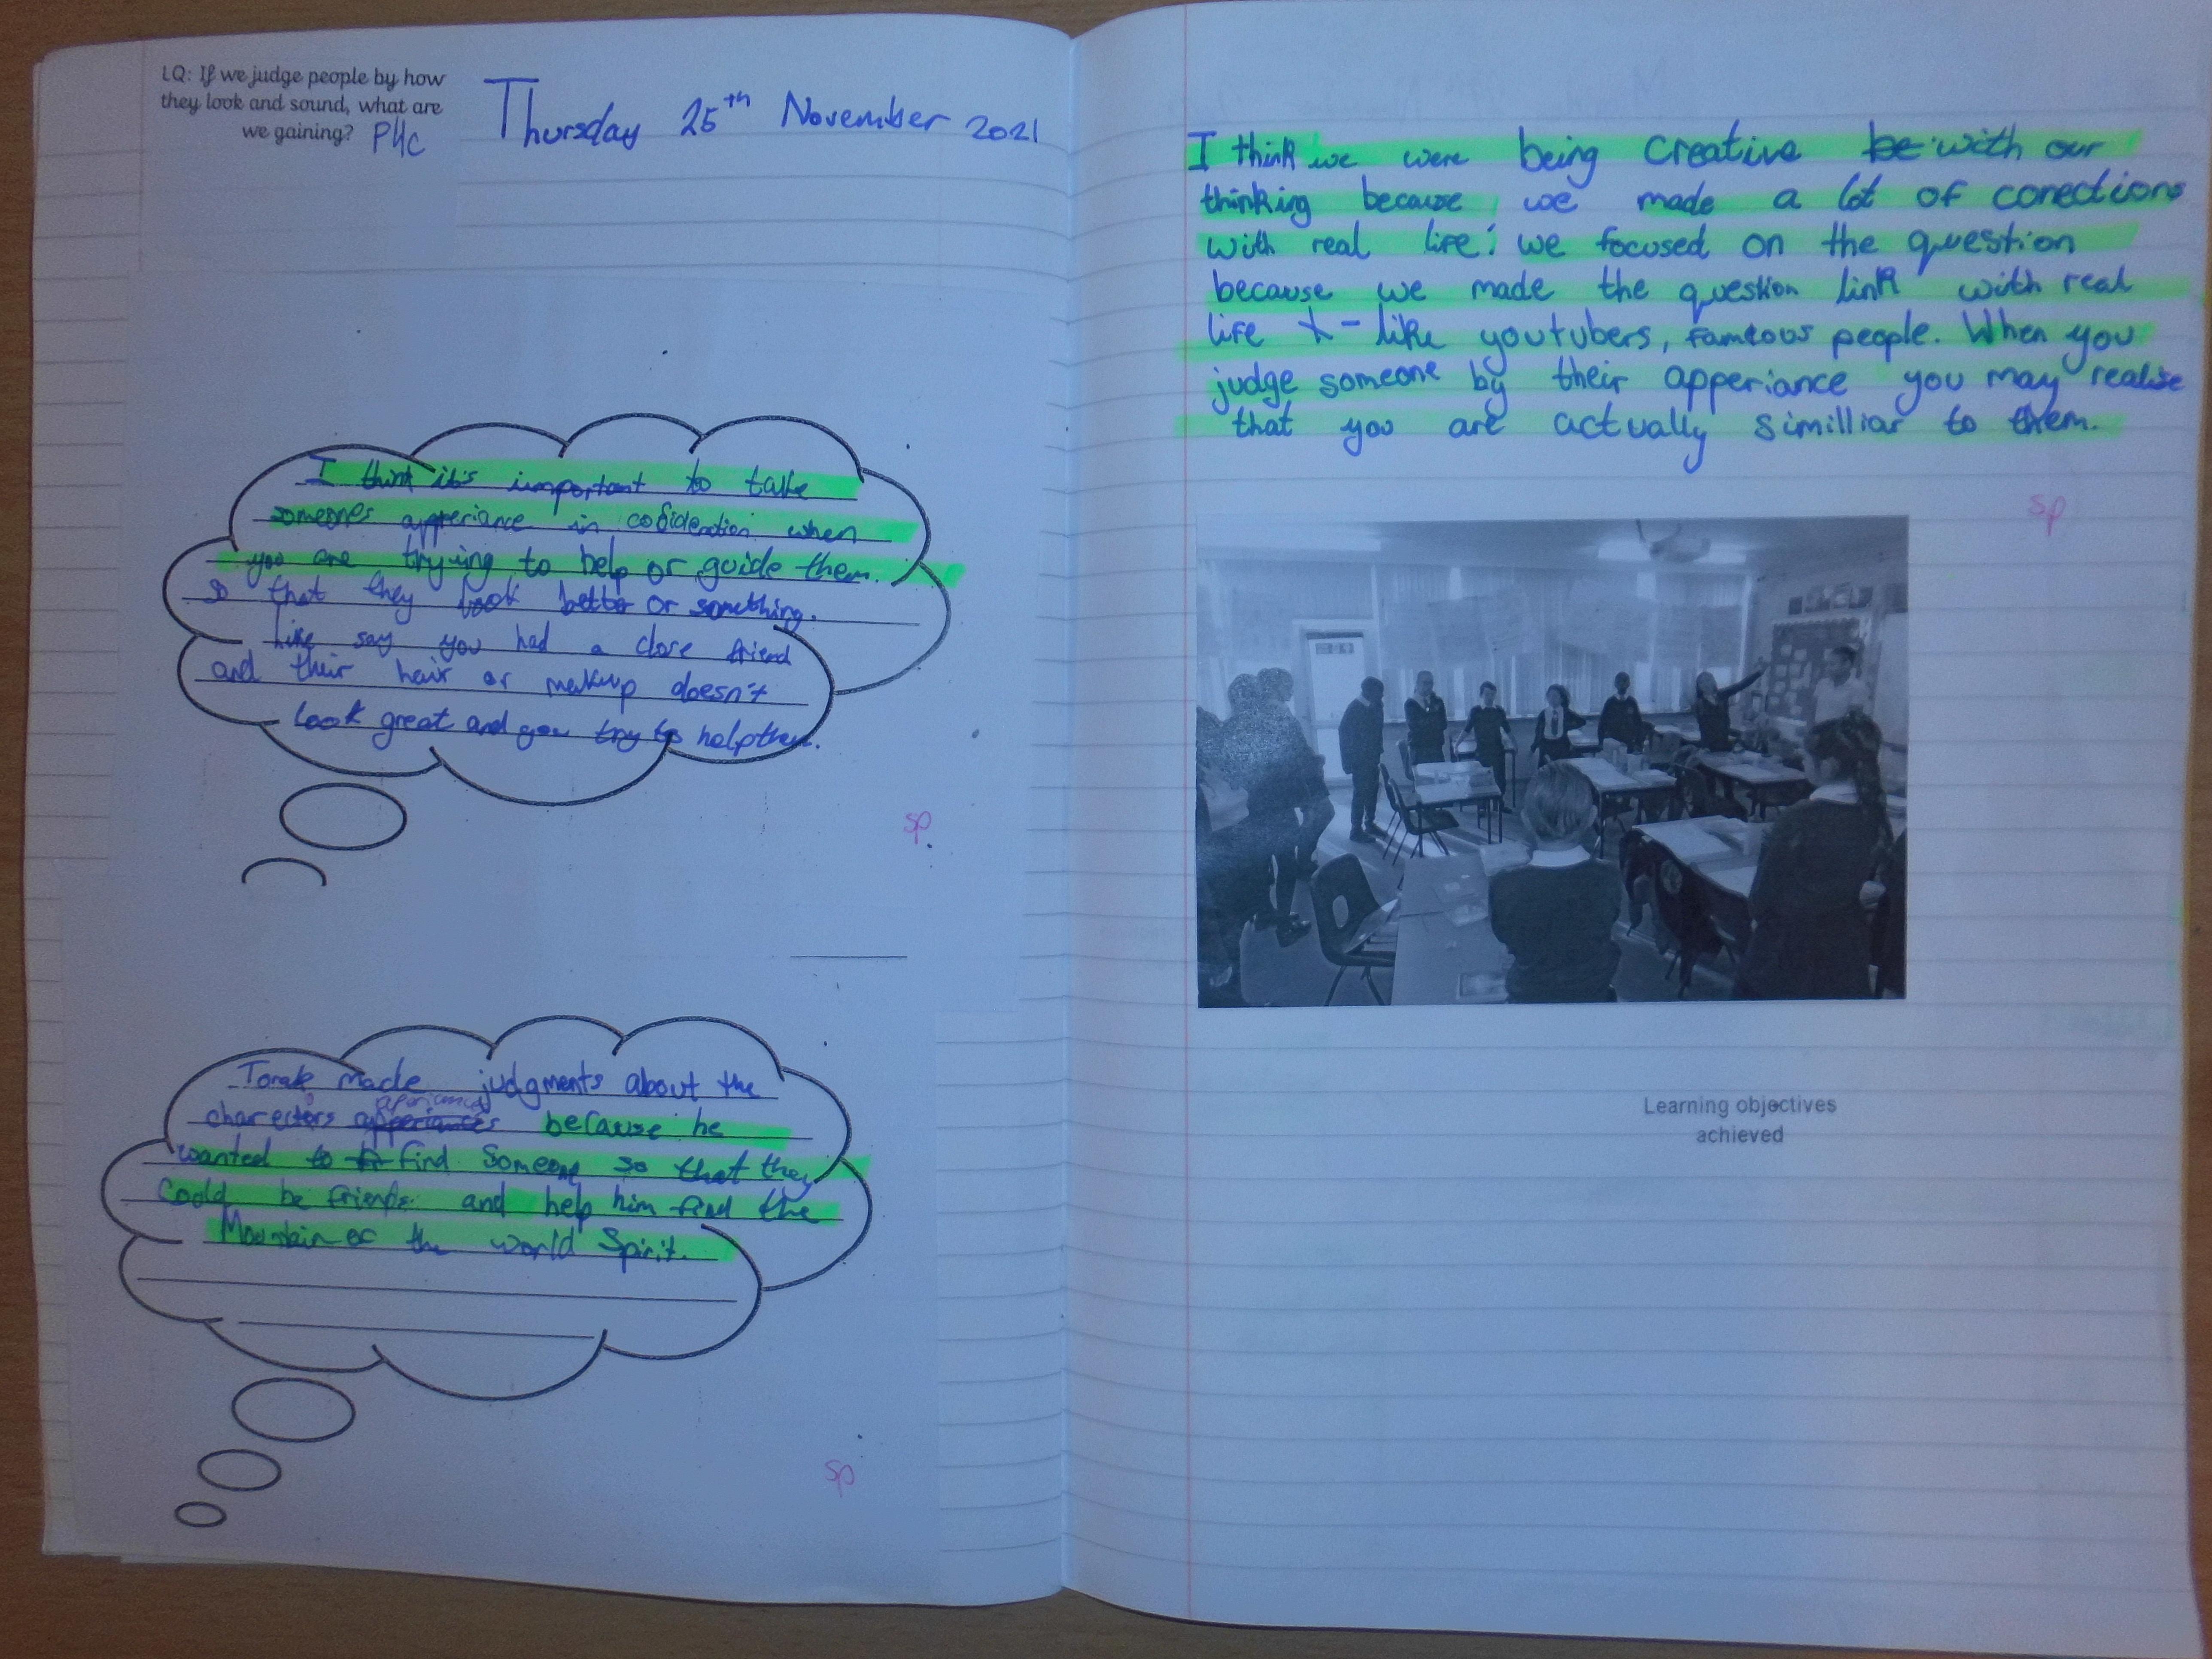 LQ: If we judge people by how
they look and sound, what are
we gaining? P4C
Thursday 25th November 2021
I think it's important to take
someones apperiance in cosideration when
you are trying to help or guide them.
so that they look better or something.
Like say you had a close friend
and their hair or makeup doesn't
look great and you try to help them.
sp
Torak made judgments about the
charectors aperiances
because he
wanted to find someone so that they
could be friends and help him find the
Mountain of the world Spirit.
sp
I think we were being creative be with our
thinking because we made a lot of conections
with real life. we focused on the question
because we made the question link with real
life - like youtubers, famous people. When you
judge someone by their apperiance you may realise
that you are actually similliar to them.
sp
Learning objectives
achieved